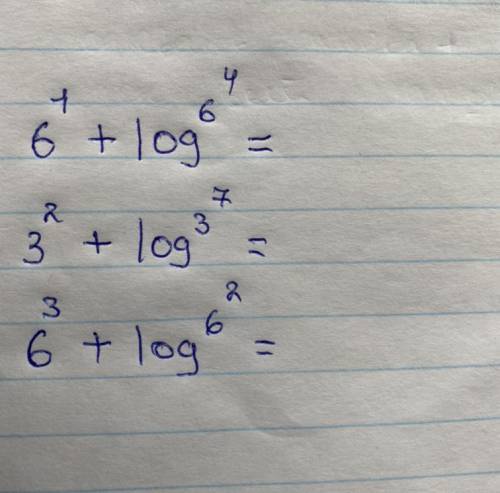 6¹ + log⁶^⁴ =
3² + log³^⁷ =
6³ + log⁶^² =